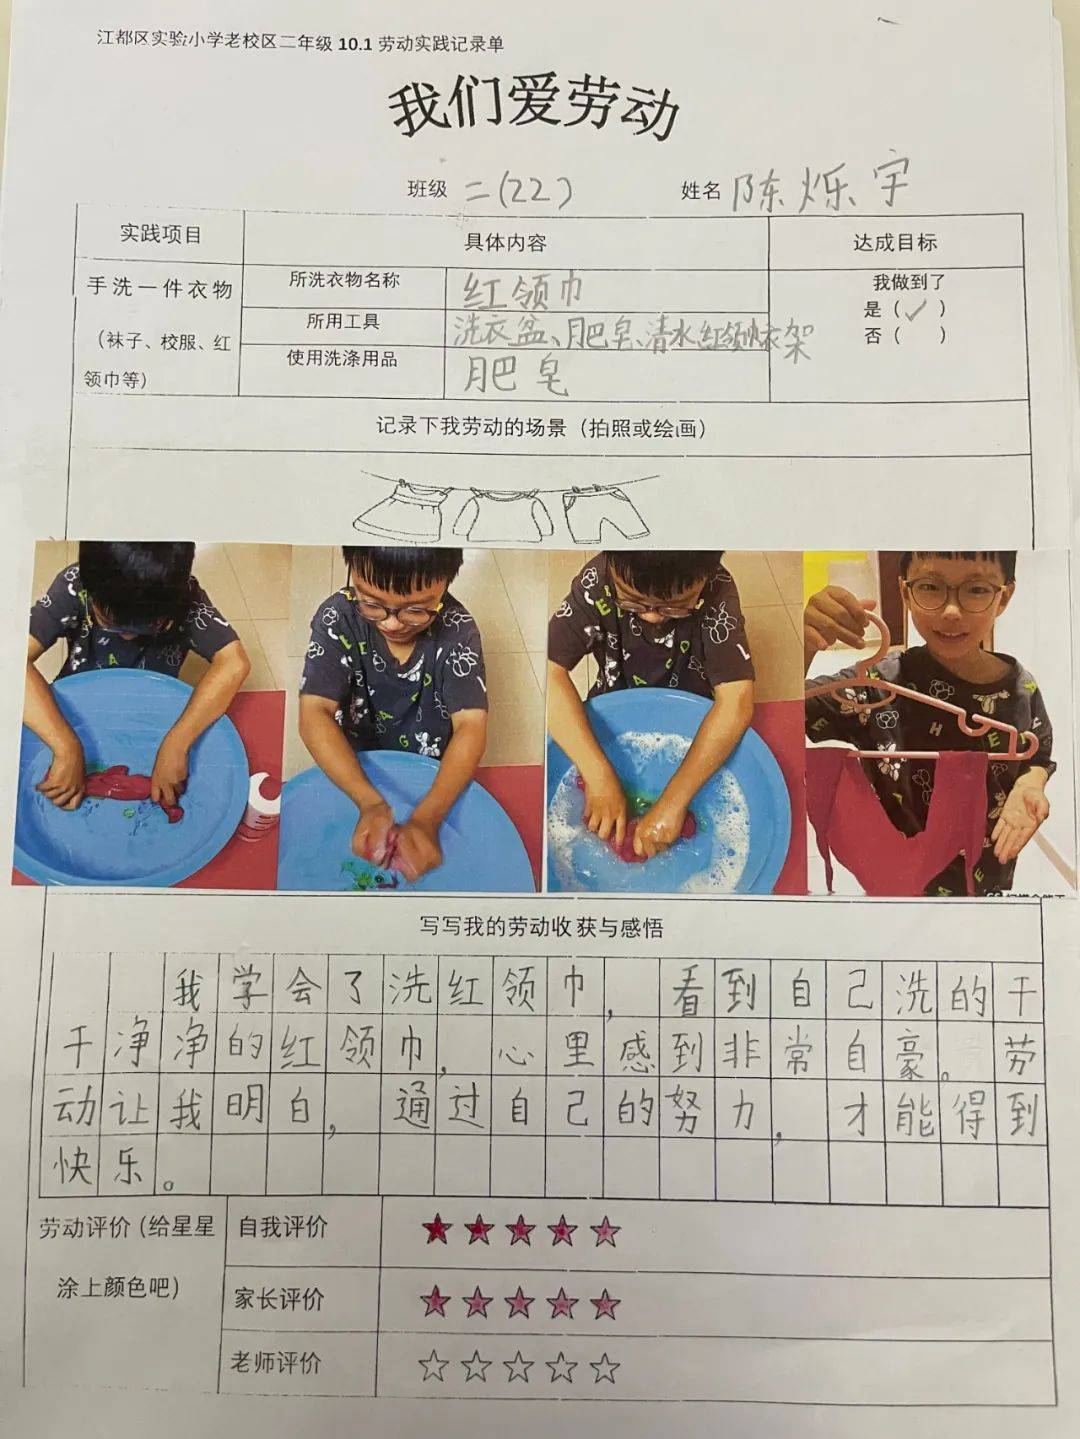 江都区实验小学老校区二年级 10.1 劳动实践记录单
我们爱劳动
班级 二(22) 姓名 陈烁宇
实践项目 具体内容 达成目标
手洗一件衣物
(袜子、校服、红
领巾等)
所洗衣物名称 红领巾
所用工具 洗衣盆、肥皂、清水、红领巾衣架
使用洗涤用品 肥皂
我做到了
是(✓)
否( )
记录下我劳动的场景(拍照或绘画)
写写我的劳动收获与感悟
我学会了洗红领巾,看到自己洗的干
干净净的红领巾,心里感到非常自豪。劳
动让我明白,通过自己的努力,才能得到
快乐。
劳动评价(给星星
涂上颜色吧)
自我评价 ★★★★★
家长评价 ★★★★★
老师评价 ☆☆☆☆☆